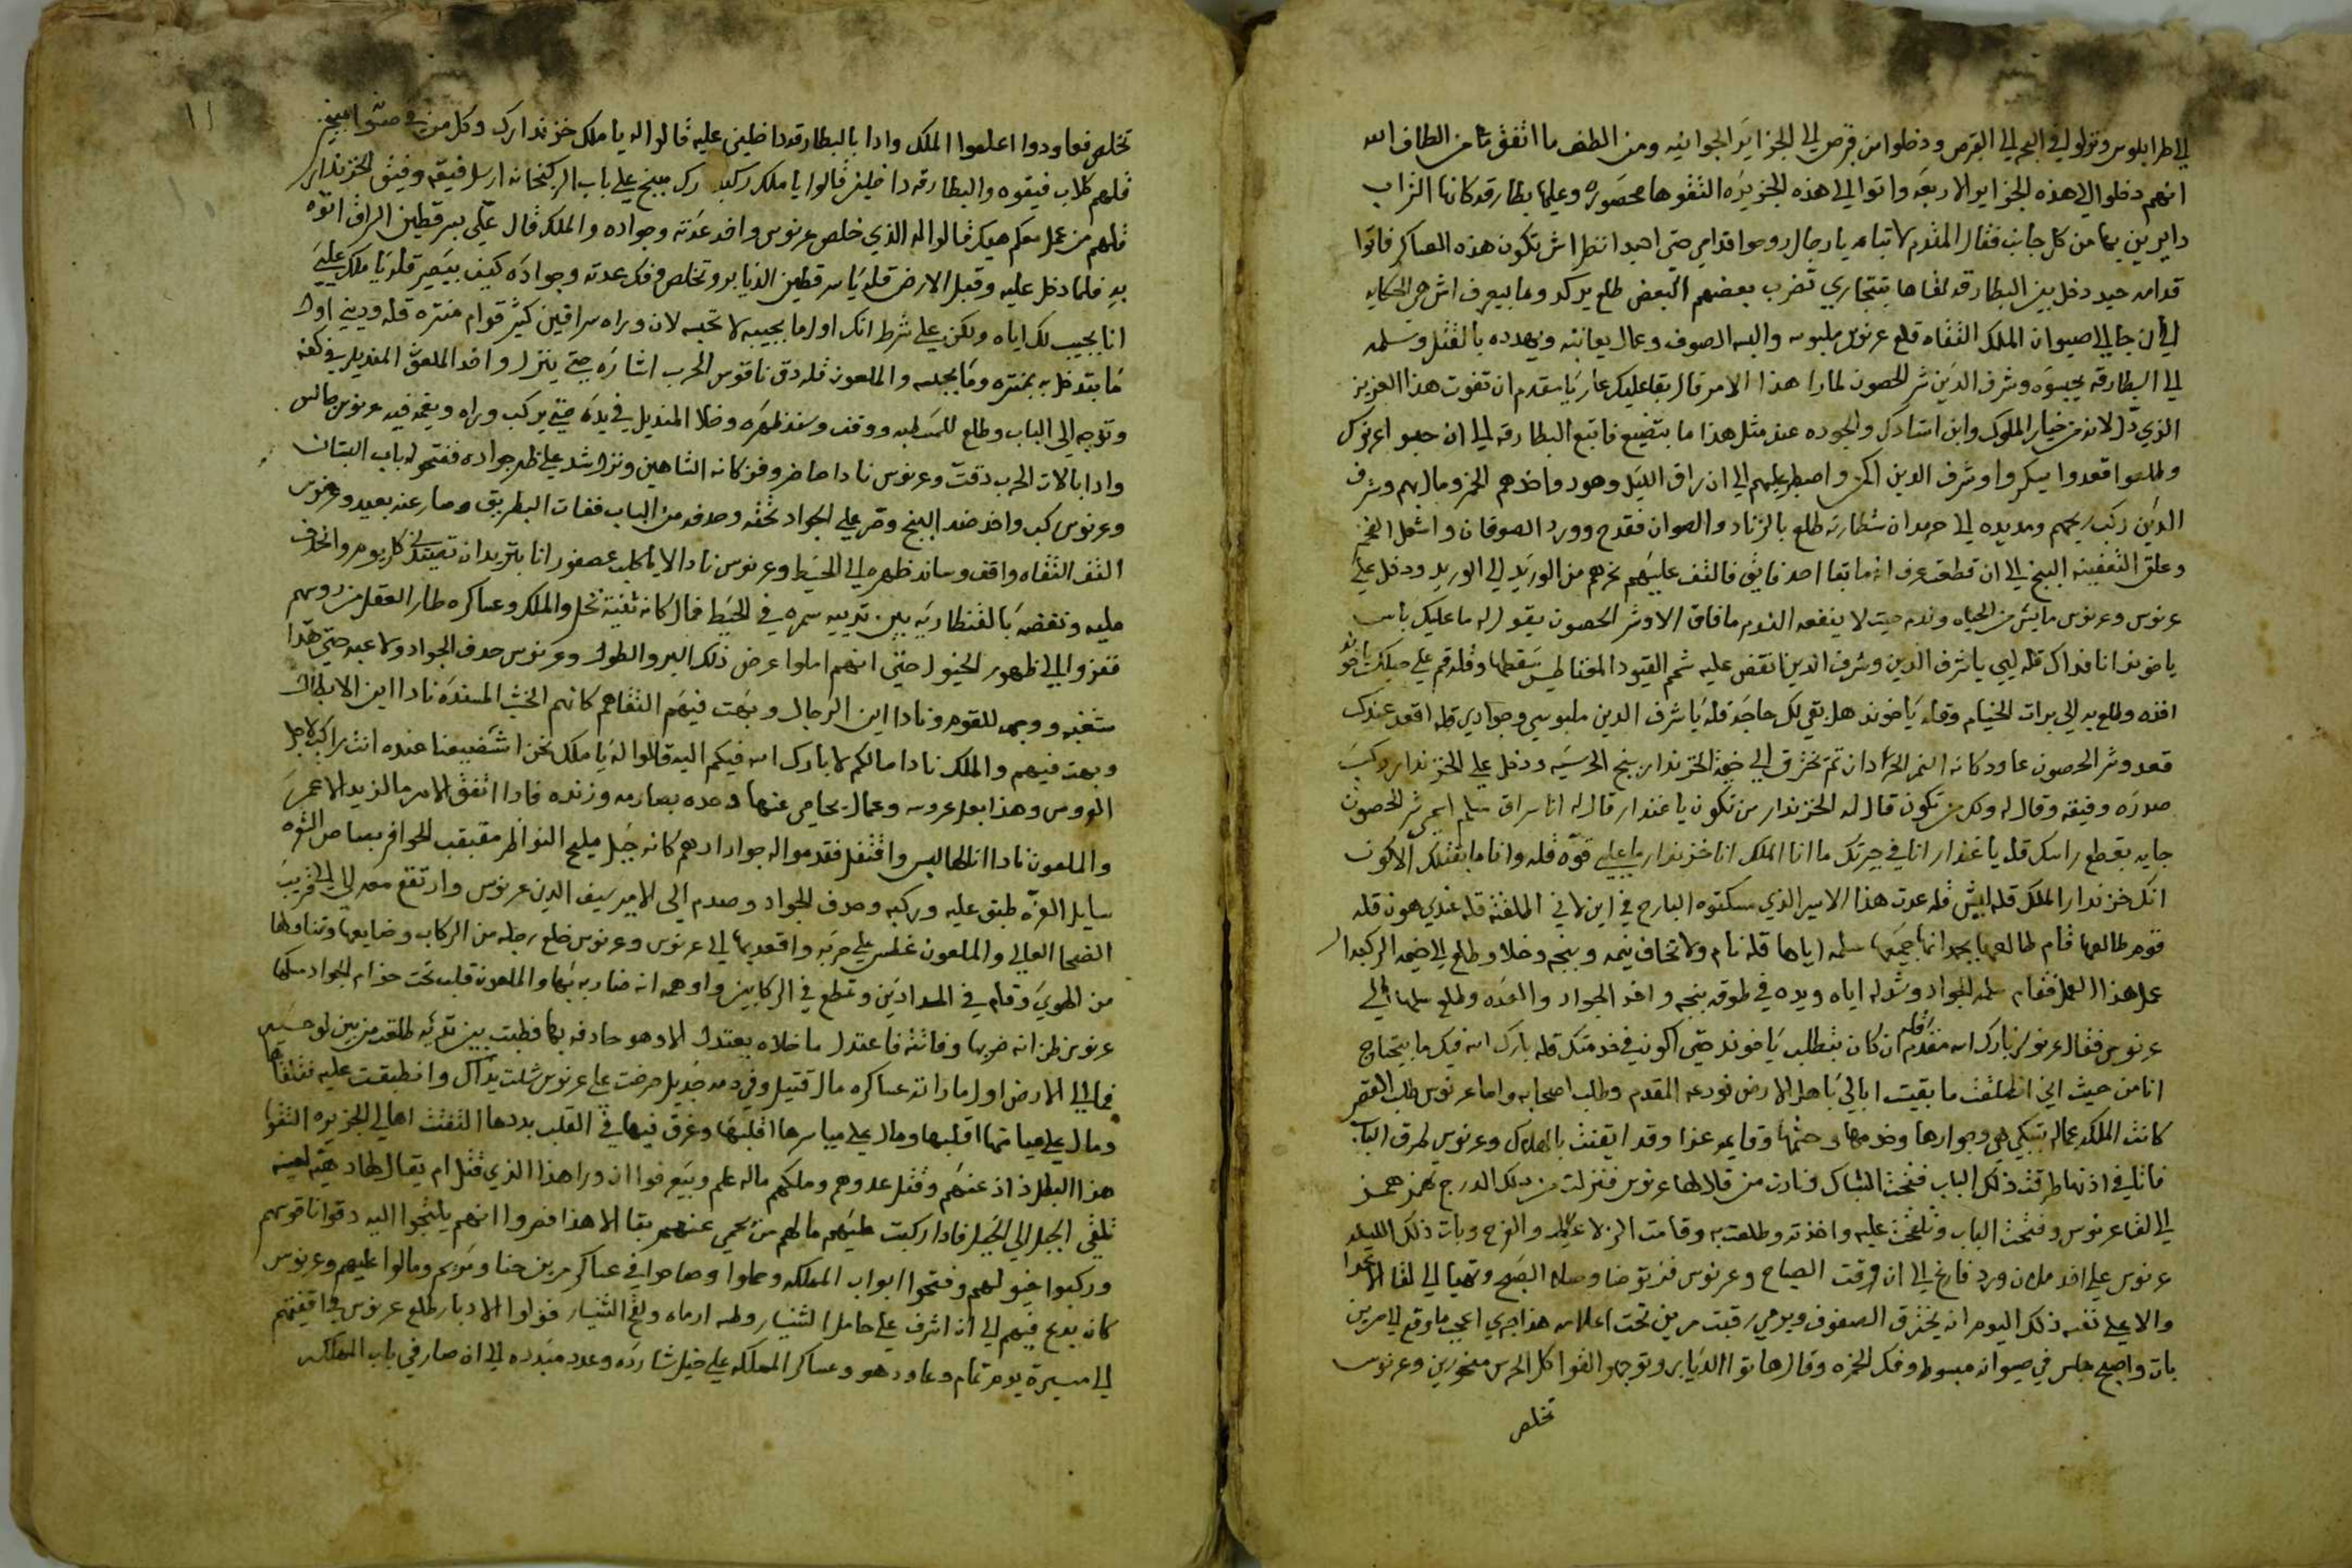 الي طرابلوس ونزلوا في البحر الي القبرص ودخلوا من قبرص الي الجزاير الجوانيه ومن اللطف ما اتفق من الطاف الله
انهم دخلوا الي هذه الجزاير الاربعه واتوا الي هذه الجزيره التقوها محصوره وعليها بطارقه كانها التراب
دايرين بها من كل جانب فقال المقدم يا رجال روحوا قدامي حتى انظر اش تكون هذه العساكر فاتوا
قدامه دخل بين البطارقه لقاها بتتجاري تضرب بعضهم البعض طلع وما بيعرف اش هي الحكايه
الي ان جا الي صيوان الملك التقاه قلع عرنوس ملبوسه والبسه الصوف وعمال يعاتبه ويهدده بالقتل وسلمه
الي البطارقه يحبسوه وشرف الدين شر الحصون لما را هذا الامر قال بقا عليك عار يا مقدم ان تفوت هذا العزيز
الذي لانه من خيار الملوك وابن استادك والجوده عند مثل هذا ما بتضيع فاتبع البطارقه الي ان حبسوا عرنوس
وطلعوا قعدوا يسكروا وشرف الدين اكمن واصطبر عليهم الي ان راق الليل وهود واخذهم الخمر ومال بهم وشرف
الدين ركب ومد يده الي جربندان شطارته طلع بالزناد والصوان فقدح وورد الصوفان واشعل الفحم
وعلق التعفينه البنج الي ان قطف عرف انه ما بقا احد فايق فالتف عليهم نحرهم من الوريد الي الوريد ودخل علي
عرنوس وعرنوس مايس من الحياه وندم حيث لا ينفعه الندم ما فاق الا وشر الحصون يقول له ما عليك باس
يا خوند انا فداك قله لبي يا شرف الدين وشرف الدين انقض عليه شم القيود المغناطيس سقطها وقله قم علي حيلك يا خوند
اخذه وطلع به الي برات الخيام وقله يا خوند هل بقي لك حاجه قله يا شرف الدين ملبوسي وجوادي قله اقعد عندك
قعد وشر الحصون عاود كانه النمر الحردان تم يخترق الي خيمة الخزندار بنج الحرسيه ودخل علي الخزندار ركب
صدره وفيقه وقال له ولك من تكون قال له الخزندار من تكون يا غندار قال له انا سراق سليم اسمي شر الحصون
جايه بقطع راسك قله يا غندار انا في جيرتك ما انا الملك انا خزندار ما علي قوه قله وانا ما بقتلك الا كون
انك خزندار الملك قله ليش قله عدت هذا الامير الذي مسكتوه البارح في اين قله عندي هون قله
قوم طالعها قام طالعها سلمه اياها قله نام ولا تخاف نيمه وبنجه وخلا وطلع الي خيمه الركبدار
عمل هذا العمل فقام سلمه الجواد وشد له اياه ويده في طوقه بنجه واخذ الجواد والعده وطلع سلمها الي
عرنوس فقال عرنوس بارك الله مقدم قله ان كان بتطلب يا خوند حتى اكون في خدمتك قله بارك الله فيك ما بيحتاج
انا من حيث اني انطلقت ما بقيت ابالي باهل الارض فودعه المقدم وطلب اصحابه واما عرنوس طلب القصر
كانت الملكه عماله تبكي هي وجوارها وخدمها وحشمها وقايمه عزا وقد ايقنت بالهلاك وعرنوس طرق الباب
في اذنها طرقت ذلك الباب فتحت الشباك ونادت من قلا لها عرنوس فنزلت من ذلك الدرج
الي لقا عرنوس وفتحت الباب وتلقحت عليه واخذته وطلعت به وقامت والفرح وبات ذلك الليله
عرنوس علي اخذ ملان ورد فارغ الي ان ورقت الصباح وعرنوس فز توضا وصلا الصبح وتهيا الي لقا الاعدا
والا علي نفسه ذلك اليوم انه يخترق الصفوف ويرمي رقبت مرين تحت اعلامه هذا جري اعجب ما وقع الي مرين
بات واصبح جلس في صيوانه مبسوط وفكر الخمره وقال هاتوا الديابرو توجهوا لقوا كل الحرس منحورين وعرنوس
تخلص
١١
تخلص فعاودوا اعلموا الملك وادا بالبطارقه داخلين عليه قالوا له يا ملك خزندارك وكل من في صيوانه مبنج
قلهم كلاب فيقوه والبطارقه داخلين قالوا يا ملك ركبدارك مبنج علي باب الركبخانه ارسل فيقه وفيق الخزندار
قلهم من عمل معكم هيك قالوا له الذي خلص عرنوس واخد عدته وجواده والملك قال علي بسرقطين الراق اتوه
به فلما دخل عليه وقبل الارض قله يا سرقطين الديابرو تخلص وفك عدته وجواده كيف بيصير قله يا ملك عليي
انا بجيب لك اياه ولكن علي شرط انك اول ما بجيبه لا تحبسه لان وراه سراقين كثير قوام منتره قله وديني اول
ما بتدخل به بمنتره وما بحبسه والملعون قله دق ناقوس الحرب اشاره حتى ينزل واخد الملعون المنديل في كفه
وتوجه الي الباب وطلع للمسطبه ووقف وسند ظهره وخلا المنديل في يده حتى يركب وراه ويغمه فيه عرنوس جالس
وادا بالات الحرب دقت وعرنوس نادا حاضر وفز كانه الشاهين ونزل شد علي ظهر جواده ففتحوا له باب البستان
وعرنوس ركب واخد ضد البنج وصر علي الجواد تحته وحدفه من الباب ففات البطريق وصار عنه بعيد وعرنوس
التف التقاه واقف وساند ظهره الي الحيط وعرنوس نادا الا يا كلب عصفور انا بتريد ان تصيدني كل يوم وانحدف
عليه ونفضه بالقنطاريه بين تدييه سمره في الحيط فمال كانه ثنية نخل والملك وعساكره طار العقل من روسهم
فقفزوا الي ظهور الخيول حتى انهم املوا عرض ذلك البر والطول وعرنوس حدف الجواد ولاعبه حتى هدا
شغبه ووجه للقوم ونادا اين الرجال وبهت فيهم التقاهم كانهم الخشب المسنده نادا اين الابطال
وبهت فيهم والملك نادا مالكم لا بارك الله فيكم اليه قالوا له يا ملك نحن اش ضيعنا عنده انت راكب لاجل
العروس وهذا بعل عروسه وعمال يحامي عنها وحده بصارمه وزنده فادا اتفق الامر مالزيد الا عمر
والملعون نادا انا لها ليس واقتفل فقدموا له جوادا ادهم كانه جبل مليح النواظر مقبقب الحوافر
سايل الغره طبق عليه وركبه وحدف الجواد وصدم الي الامير سيف الدين عرنوس وارتفع معه الي قريب
الضحا العالي والملعون غطس علي حربه واقعد بها الي عرنوس وعرنوس خلع رجله من الركاب وضايعها وتناولها
من الهوي وقام في السدادين وتمطع في الركابين واوهمه انه ضاربه بها والملعون قلب تحت حزام الجواد مسكها
عرنوس ظن انه ضربها وفاتته فاعتدل ما خلاه يعتدل الا وهو حادفه بها فطبت بين تدييه طلعت من بين لوحيه
فمال الي الارض اول ما راته عساكره مال قتيل وفي دمه جديل صرخت علي عرنوس شلت يداك وانطبقت عليه فتلقاها
ومال علي ميامنها اقلبها ومال علي مياسرها اقلبها وغرق فيها في القلب بددها التفتت اهالي الجزيره التقوا
هذا البطل ذاد عنهم وقتل عدوهم وملكهم ماله علم وبيعرفوا ان ورا هذا الذي قتل ام يقال لها
تلقي الجبل الي الجبل فادا ركبت عليهم مالهم من يحمي عنهم بقا الا هذا فصروا انهم يلتجوا اليه دقوا ناقوسهم
وركبوا خيولهم وفتحوا ابواب المملكه وحملوا وصاحوا في عساكر مرين حنا ومريم ومالوا عليهم وعرنوس
كانه يدبح فيهم الي ان اشرف علي حامل الشنيار وطسه ارماه ووقع الشنيار فولوا الادبار طلع عرنوس في اقفيتهم
الي مسيرة يوم تمام وعاود هو وعساكر المملكه علي خيل شارده وعدد مبدده الي ان صار في باب المملكه